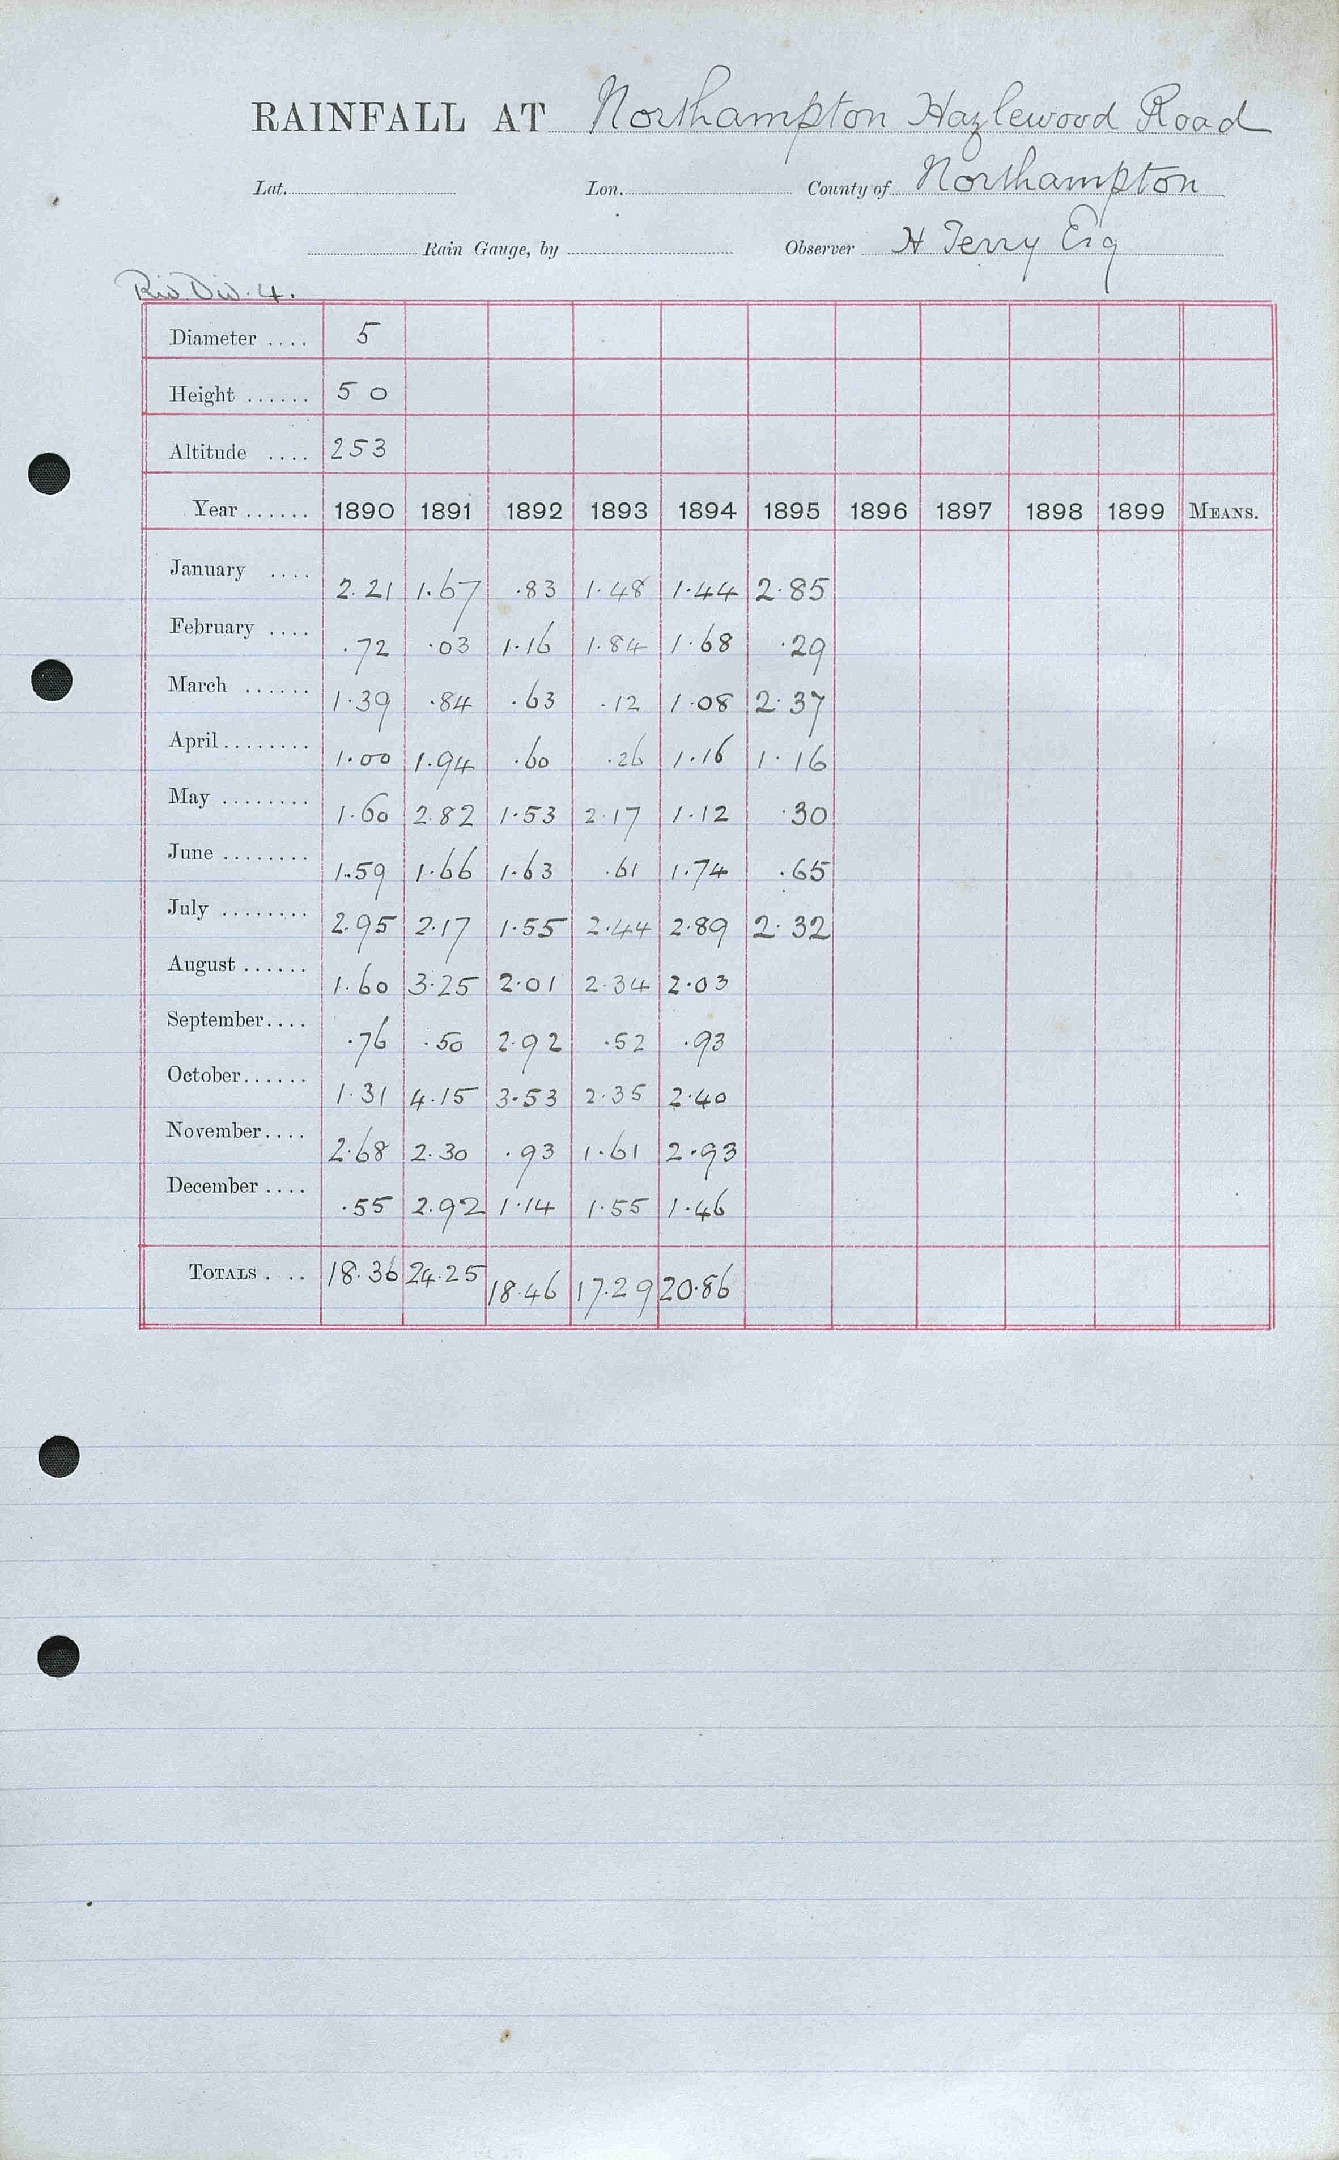 RAINFALL AT Northampton Hazlewood Road
Lat. Lon. County of Northampton
Rain Gauge, by Observer H Terry Esq
Riv. Div. 4.
Diameter .... 5
Height ...... 5 0
Altitude .... 253
Year ...... 1890 1891 1892 1893 1894 1895 1896 1897 1898 1899 MEANS.
January .... 2.21 1.67 .83 1.48 1.44 2.85
February .... .72 .03 1.16 1.84 1.68 .29
March ...... 1.39 .84 .63 .12 1.08 2.37
April ........ 1.00 1.94 .60 .26 1.16 1.16
May ........ 1.60 2.82 1.53 2.17 1.12 .30
June ........ 1.59 1.66 1.63 .61 1.74 .65
July ........ 2.95 2.17 1.55 2.44 2.89 2.32
August ...... 1.60 3.25 2.01 2.34 2.03
September .... .76 .50 2.92 .52 .93
October ...... 1.31 4.15 3.53 2.35 2.40
November .... 2.68 2.30 .93 1.61 2.93
December .... .55 2.92 1.14 1.55 1.46
TOTALS . .. 18.36 24.25 18.46 17.29 20.86